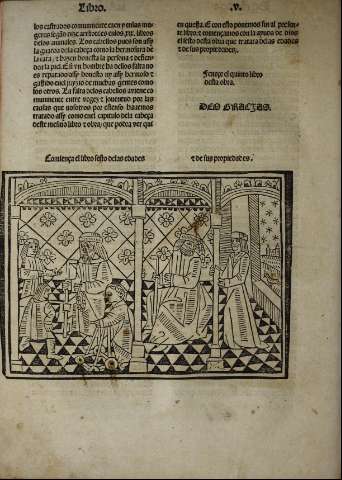 Libro. .V.
los castrados comunmente caen y enlas mu
geres segun dize aristoteles enlos .xix. libros
delos animales. Los cabellos pues son assy
la guarda dela cabeça como la hermosura de
la cara, y hazen honesta la persona y defiende
la piel. E si vn hombre ha dellos falta no
es reputado assy honesto ny assy hermoso y
gastado enel juyzio de muchas gentes como
los otros. La falta delos cabellos auiene co
munmente entre vegez y jouentut por las
causas que nosotros por estenso hauemos
tratado assy como enel capitulo dela cabeça
deste mesmo libro y obra, que podra ver qui
en questa. E con esto ponemos fin al presen
te libro: y començamos con la ayuda de dios
el sesto desta obra que tratara delas edades
y de sus propiedades.
Fenece el quinto libro
desta obra.
DEO GRACIAS.
Comiença el libro sesto delas edades
y de sus propiedades.